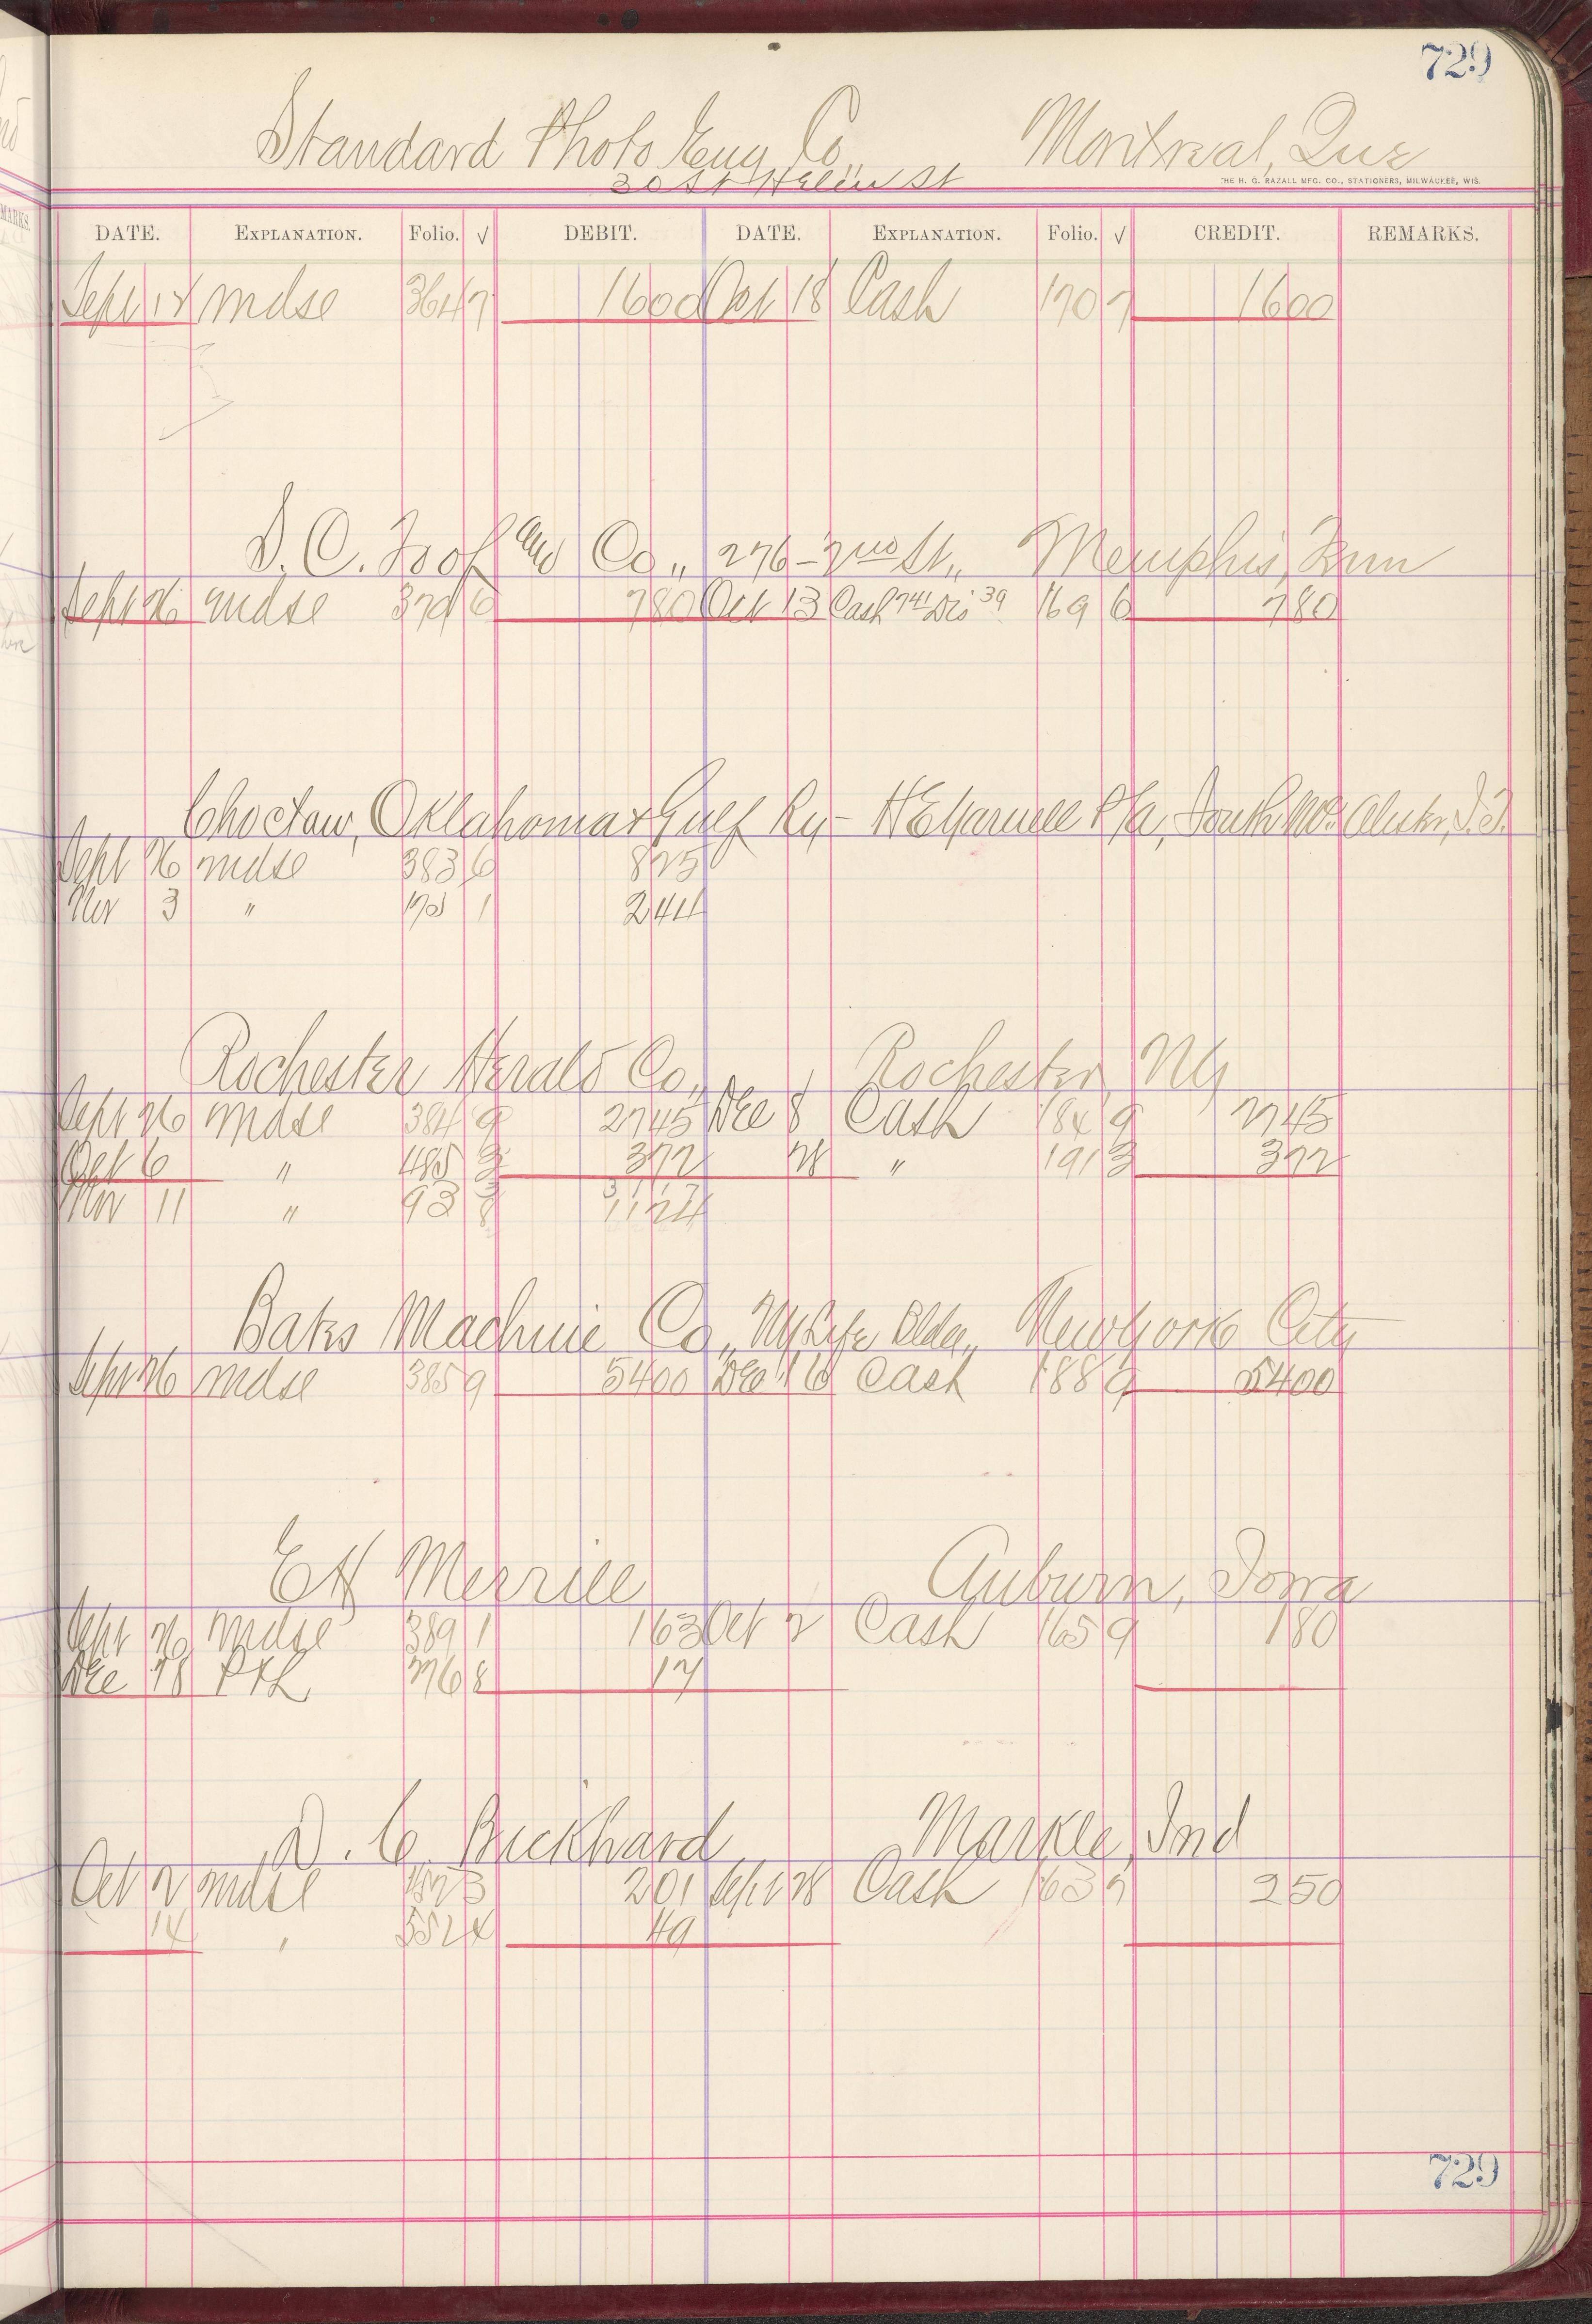 729
Standard Photo Eng Co,, Montreal, Que
30 St Helen St
THE H. G. RAZALL MFG. CO., STATIONERS, MILWAUKEE, WIS.
DATE. EXPLANATION. Folio. √ DEBIT. DATE. EXPLANATION. Folio. √ CREDIT. REMARKS.
Sept mdse 364 7 1600 Oct 18 Cash 170 7 1600
D. C. and Co,, 276 - 2nd St,, Memphis, Tenn
Sept 26 mdse 379 6 780 Oct 13 Cash 741 Dis 39 169 6 780
Choctaw, Oklahoma & Gulf Ry - P/A, South McAlester, I.T.
Sept 26 mdse 383 6 825
Nov 3 " 1 244
Rochester Herald Co,, Rochester, NY
Sept 26 mdse 384 9 2745 Dec 8 Cash 184 9 2745
Oct 6 " 485 3 372 28 " 191 3 372
3117
Nov 11 " 93 8 1124
Bates Machine Co,, NY Life Bldg,, New York City
Sept 26 mdse 385 9 5400 Dec 16 Cash 188 9 5400
EH Merrill Auburn, Iowa
Sept 26 mdse 389 1 163 Oct 2 Cash 165 9 180
Dec 28 P&L 276 8 17
D. C. Bickhard Markle, Ind
Oct 2 mdse 3 201 Sept 28 Cash 163 7 250
14 " 552 4 49
729